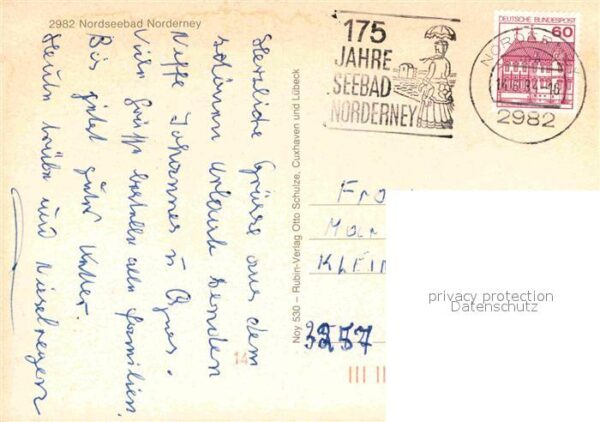 2982 Nordseebad Norderney
175
JAHRE
SEEBAD
NORDERNEY
DEUTSCHE BUNDESPOST
60
2982
Herzliche Grüsse aus dem
schönen Urlaub senden
Neffe Johannes u. Agnes.
Viele Grüße bestelle allen Familien.
Bis jetzt gutes Wetter.
Heute trübe und Nieselregen
Noy 530 – Rubin-Verlag Otto Schulze, Cuxhaven und Lübeck
Fra
Mar
KLEIN
3257
14
privacy protection
Datenschutz